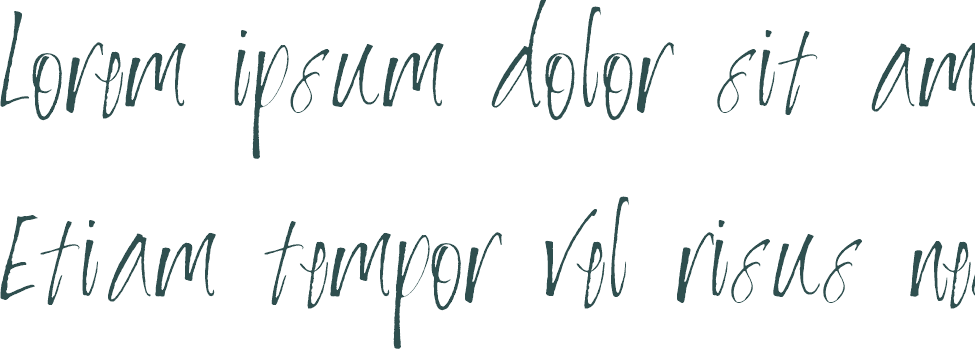 Lorem ipsum dolor sit am
Etiam tempor vel risus ne